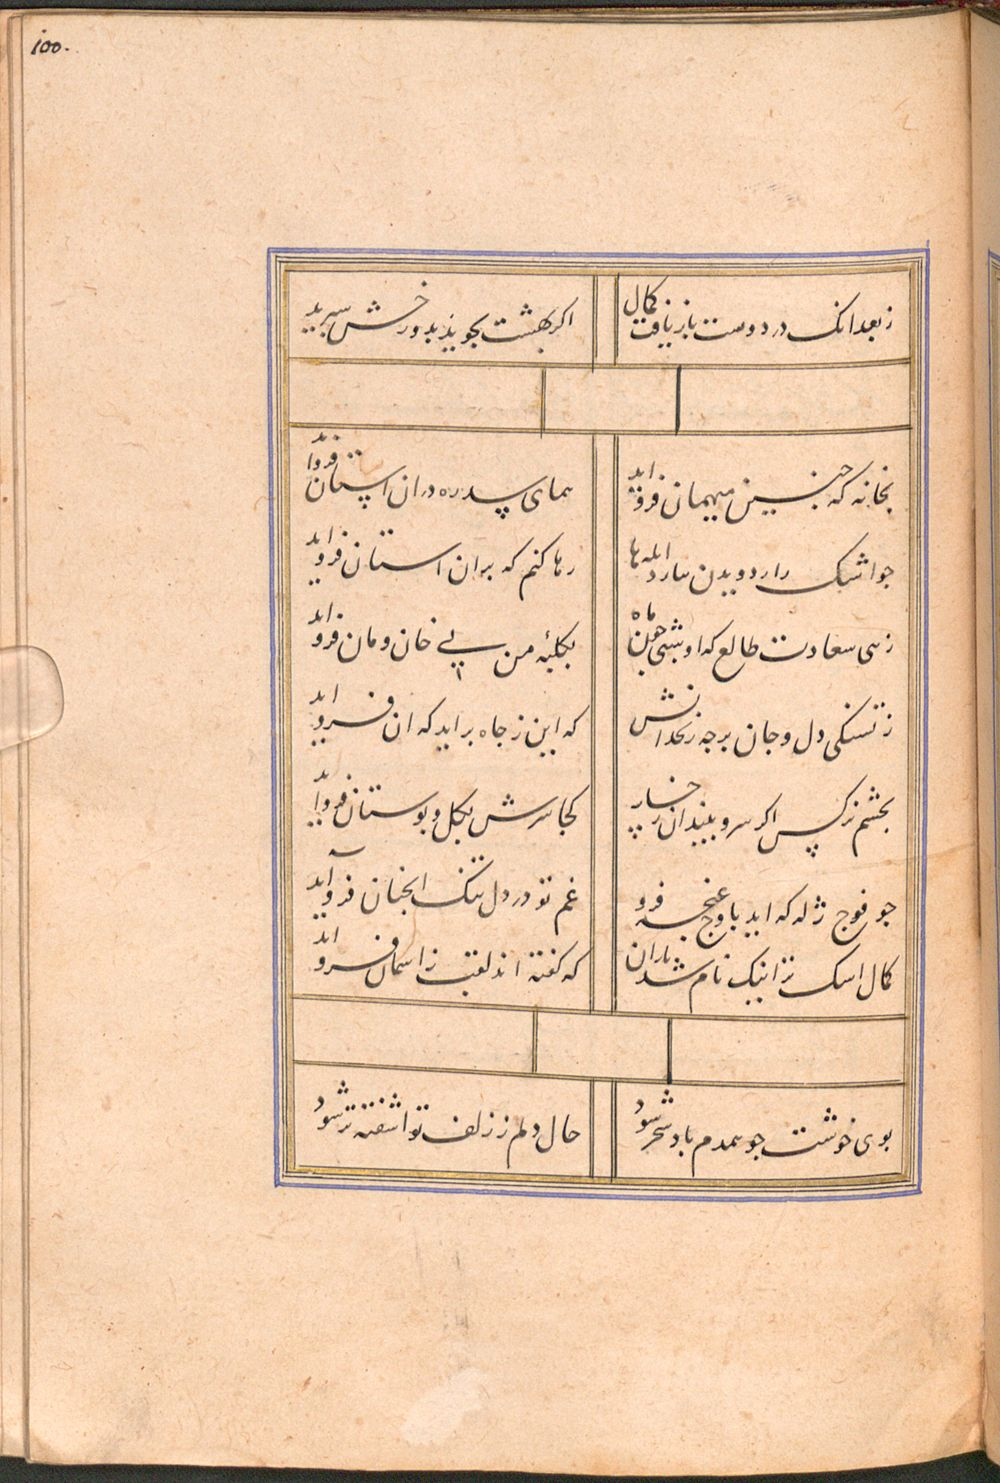 100.
زبعد انک در دوست باز یافت کمال
اکر بهشت بجویند بدورخش سپرید
بخانه که چنین میهمان فرو اید
همای سدره دران استان فرو اید
جو اشک را ردویدن
رها کنم که بران استان فرو اید
زهی سعادت طالع که او شبی جون ماه
بکلبهٔ من بی خان و مان فرو اید
ز تشنکی دل و جان بر جه زنخدانش
که این ز جاه براید که ان فرو اید
بچشم نرکس اکر سرو بیند ان رخسار
کجا سرش بکل و بوستان فرو اید
جو فوج ژاله که اید باوج غنجه فرو
غم تو در دل تنک انجنان فرو آید
کمال اشک ترا نیک نام شد باران
که کفته اند لقب ز اسمان فرو اید
بوی خوشت جو همدم باد سحر شود
حال دلم ز زلف تو اشفته تر شود